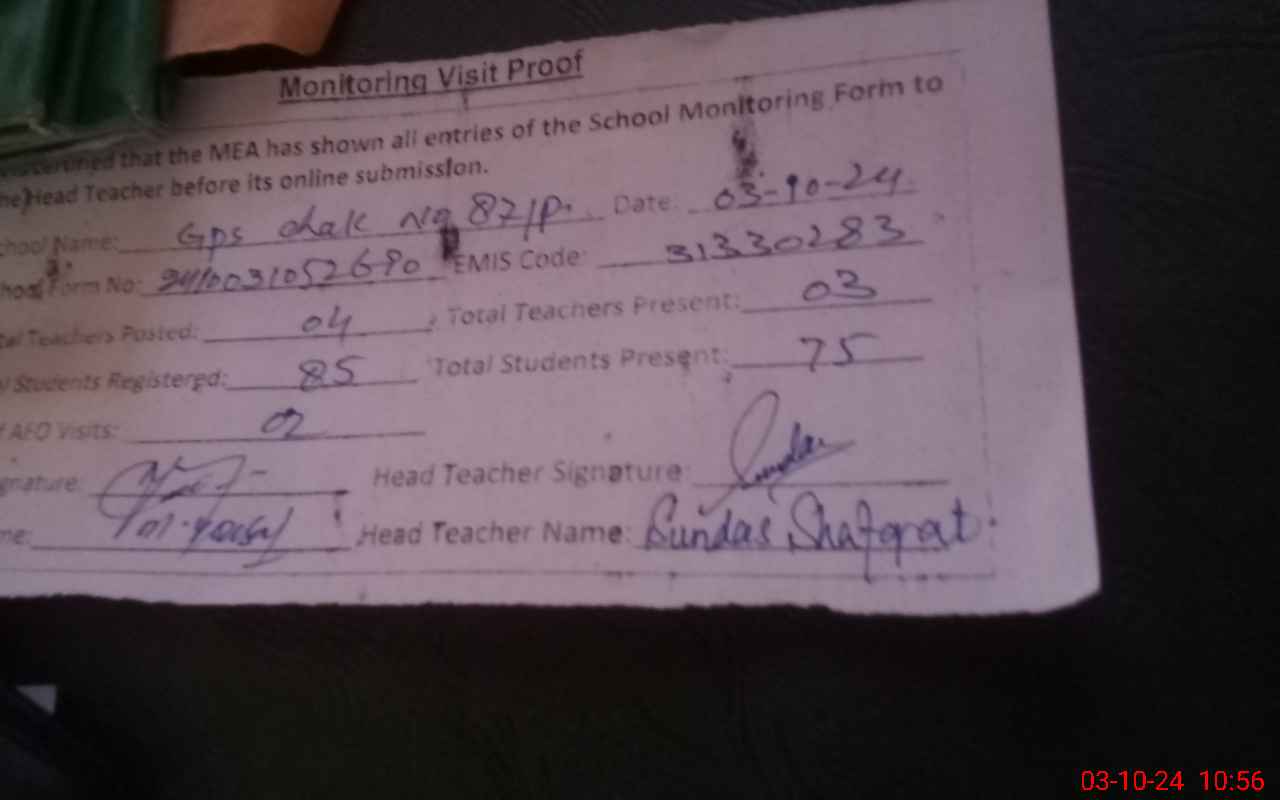 Monitoring Visit Proof
certified that the MEA has shown all entries of the School Monitoring Form to
he Head Teacher before its online submission.
chool Name: Gps chak No 87/P. Date: 03-10-24
hool Form No: 24100310526 EMIS Code: 31330283
tal Teachers Posted: 04, Total Teachers Present: 03
l Students Registered: 85 Total Students Present: 75
f AEO Visits: 02
gnature: Head Teacher Signature:
me: Head Teacher Name: Sundas Shafqat
03-10-24 10:56